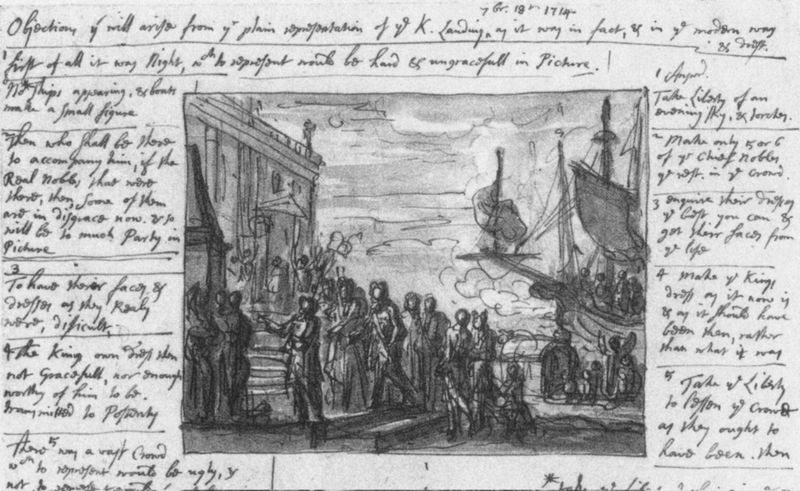 7br. 18th 1714
Objections yt will arise from ye plain representation of ye K. Landing, as it was in fact, & in ye modern way
& dress.
First of all it was Night, wch to represent would be hard & ungracefull in Picture.
No ships appearing, & boats
make a small figure
2 Then who shall be there
to accompany him, if the
Real Nobles that were
there, then, some of them
are in disgrace now, & so
will be so much Party in
Picture
3
To have their faces &
dresses as they Realy
were, dificult,
4 The King own dress then
not Gracefull, nor enough
worthy of him to be
transmitted to Posterity
5
There was a vast Crowd
wch to represent would be ugly, &
not to represent
1 Answr.
Take Liberty of an
evening sky, & torches.
2 Make only 5 or 6
of ye Chief Nobles,
ye rest in ye Crowd.
3 enquire their dresses
ye best you can &
get their faces from
ye life
4 Make ye Kings
dress as it now is
& as it should have
been then, rather
than what it was
5 Take ye Liberty
to lessen ye Crowd
as they ought to
have been then